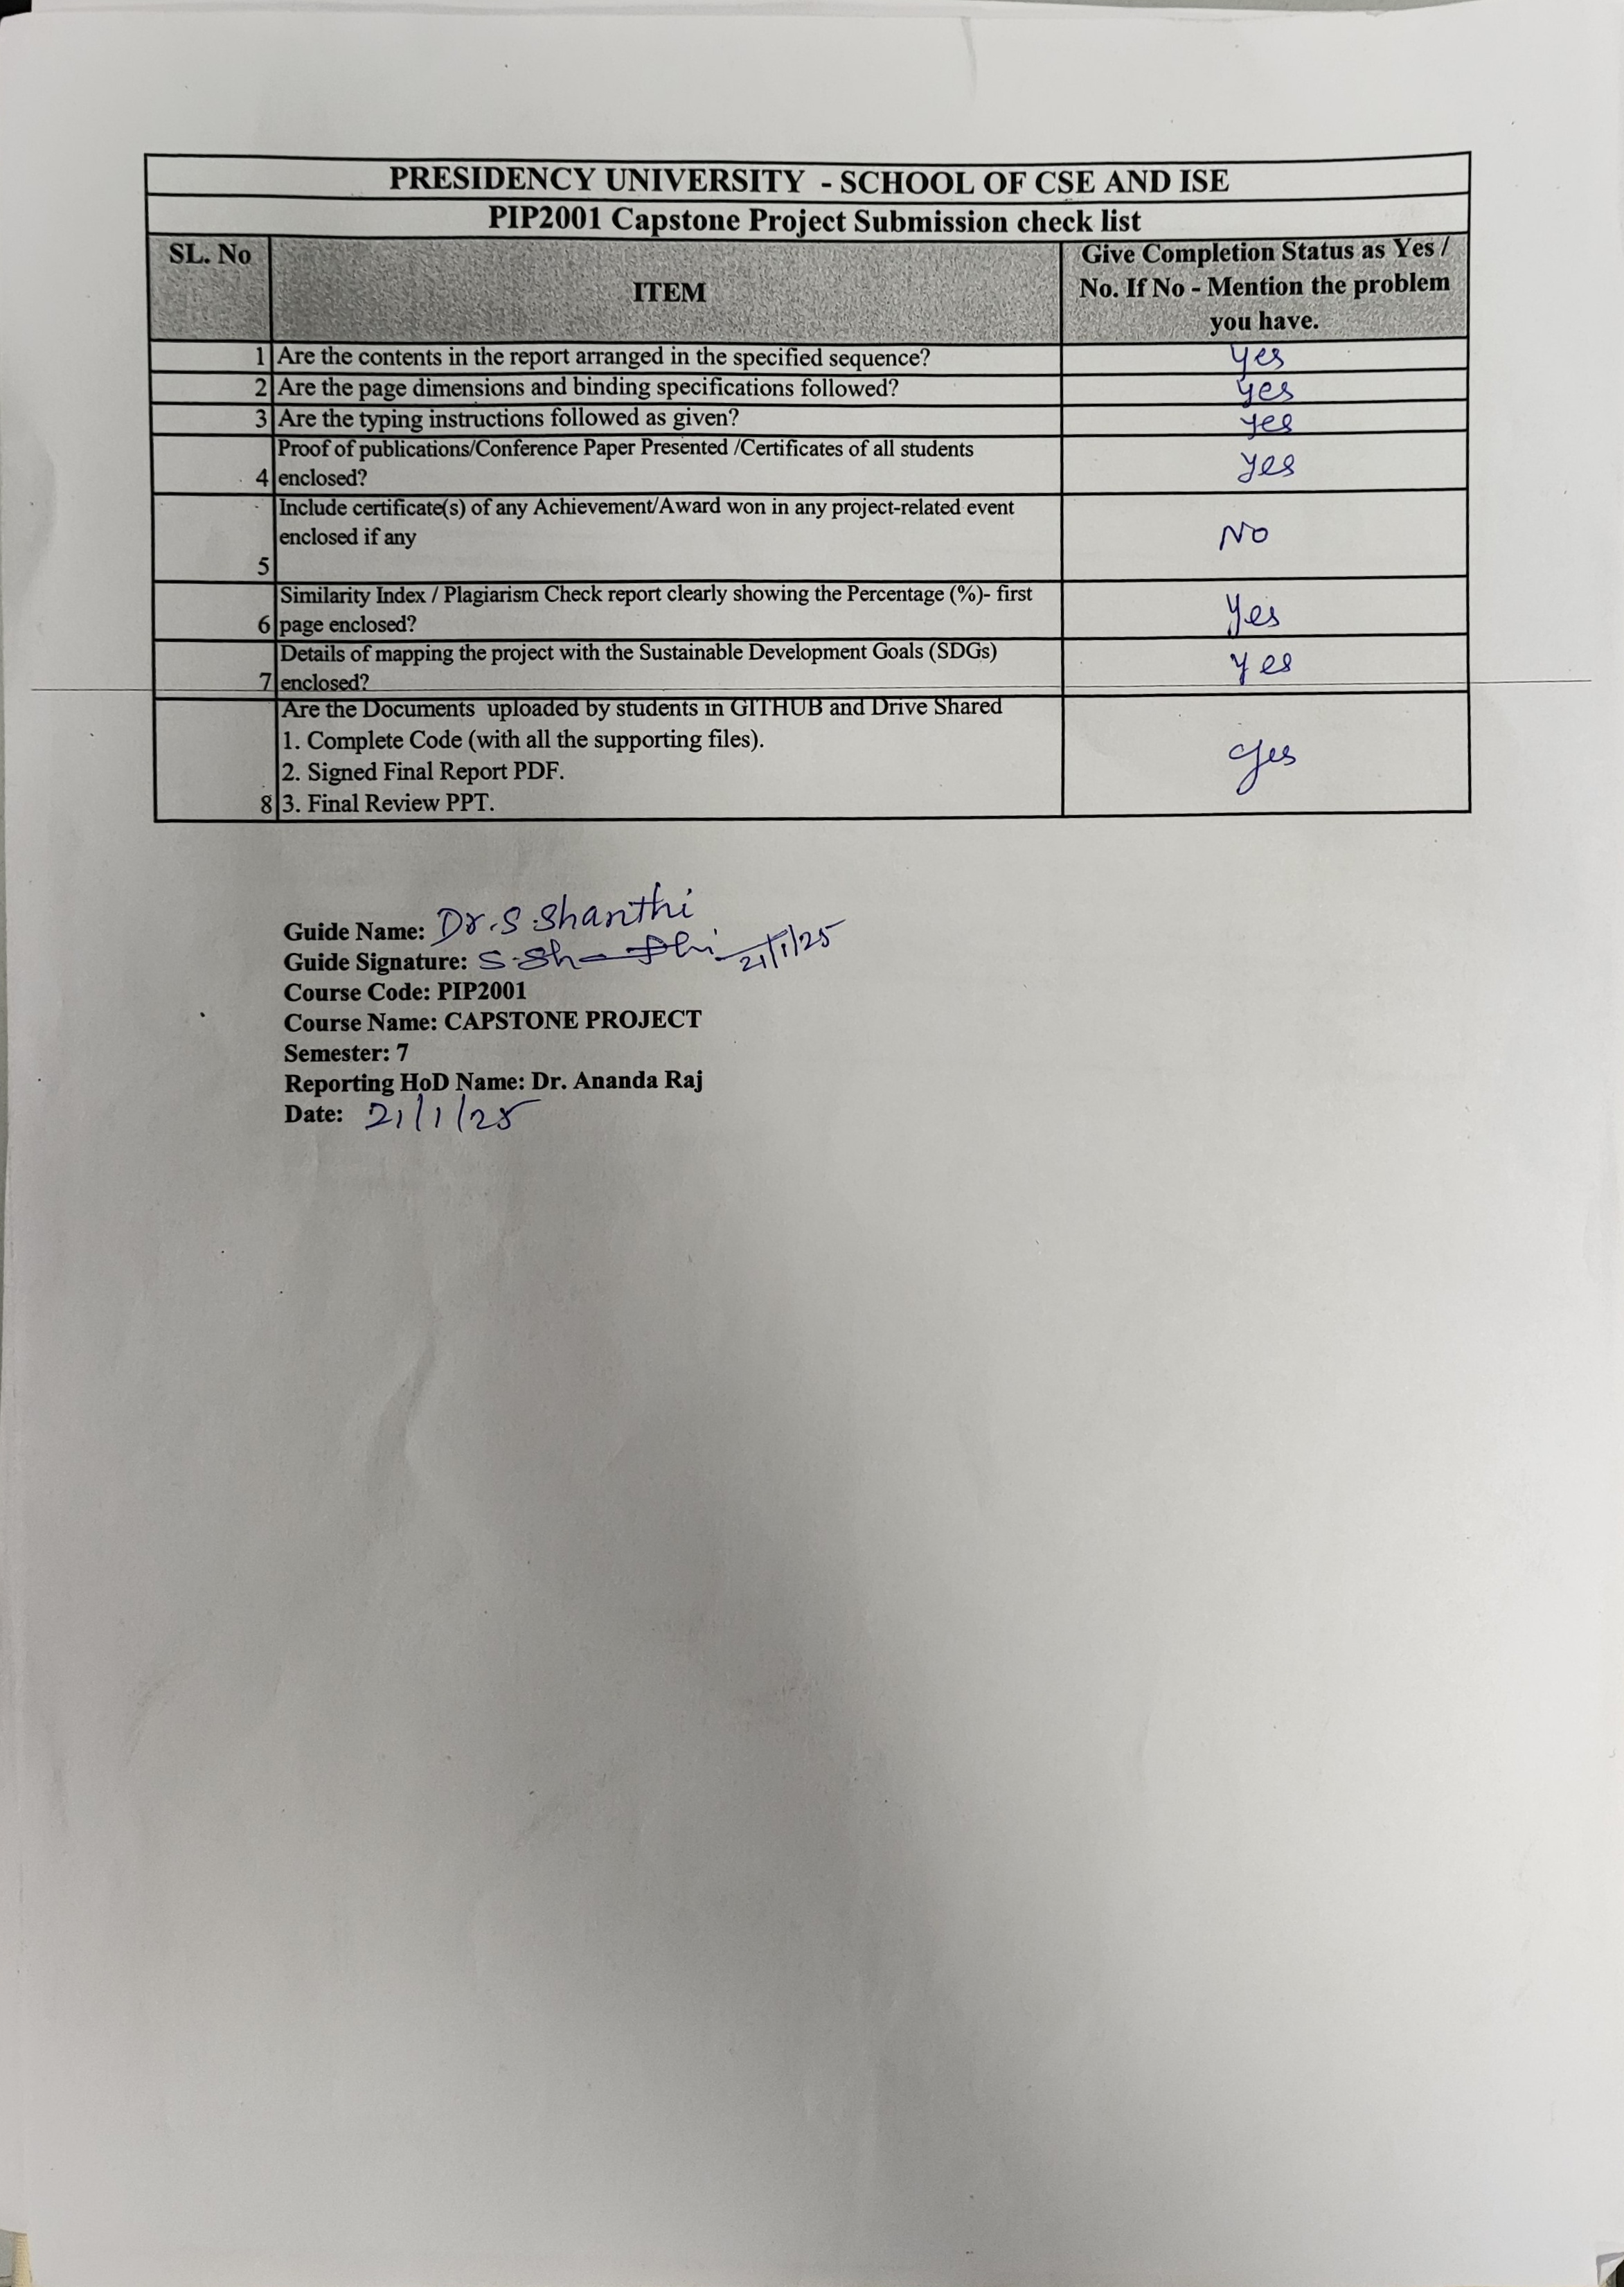 PRESIDENCY UNIVERSITY - SCHOOL OF CSE AND ISE
PIP2001 Capstone Project Submission check list
SL. No
ITEM
Give Completion Status as Yes /
No. If No - Mention the problem
you have.
1 Are the contents in the report arranged in the specified sequence? yes
2 Are the page dimensions and binding specifications followed? yes
3 Are the typing instructions followed as given? yes
Proof of publications/Conference Paper Presented /Certificates of all students
4 enclosed? yes
Include certificate(s) of any Achievement/Award won in any project-related event
enclosed if any NO
5
Similarity Index / Plagiarism Check report clearly showing the Percentage (%)- first
6 page enclosed? Yes
Details of mapping the project with the Sustainable Development Goals (SDGs)
7 enclosed? yes
Are the Documents uploaded by students in GITHUB and Drive Shared
1. Complete Code (with all the supporting files).
2. Signed Final Report PDF. yes
8 3. Final Review PPT.
Guide Name: Dr. S. Shanthi
Guide Signature: S. Shanthi 21/1/25
Course Code: PIP2001
Course Name: CAPSTONE PROJECT
Semester: 7
Reporting HoD Name: Dr. Ananda Raj
Date: 21/1/25